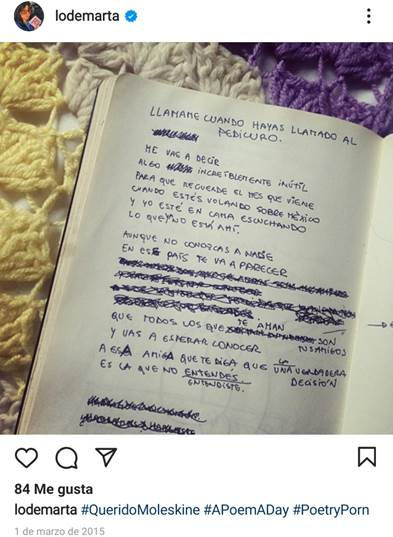 lodemarta
LLAMAME CUANDO HAYAS LLAMADO AL
PEDICURO.
ME VAS A DECIR
ALGO INCREÍBLEMENTE INÚTIL
PARA QUE RECUERDE EL MES QUE VIENE
CUANDO ESTÉS VOLANDO SOBRE MÉXICO
Y YO ESTÉ EN CAMA ESCUCHANDO
LO QUE YA NO ESTÁ AHÍ.
AUNQUE NO CONOZCAS A NADIE
EN ESE PAÍS TE VA A PARECER
QUE TODOS LOS QUE TE AMAN SON
TUS AMIGOS
Y VAS A ESPERAR CONOCER
A ESA AMIGA QUE TE DIGA QUE LA
UNA VERDADERA
DECISIÓN
ES LA QUE NO ENTENDÉS
ENTENDISTE.
84 Me gusta
lodemarta #QueridoMoleskine #APoemADay #PoetryPorn
1 de marzo de 2015